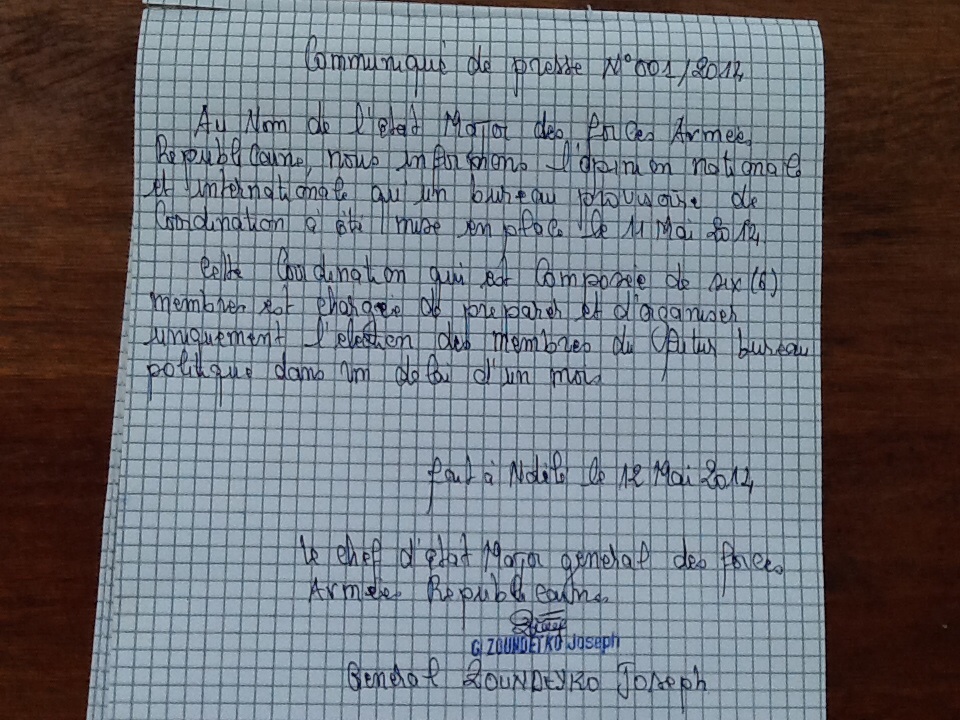 Communiqué de presse N°001/2014
Au Nom de l'etat Major des forces Armees
Republicaine, nous informons l'opinion nationale
et internationale qu'un bureau provisoire de
Coordination a été mise en place le 11 Mai 2014
Cette Coordination qui est Composée de six (6)
membres est chargée de preparer et d'organiser
uniquement l'election des membres du futur bureau
politique dans un delai d'un mois
fait à Ndélé le 12 Mai 2014
le chef d'état Major general des forces
Armées Republicaine
G. ZOUNDEIKO Joseph
General ZOUNDEYKO Joseph